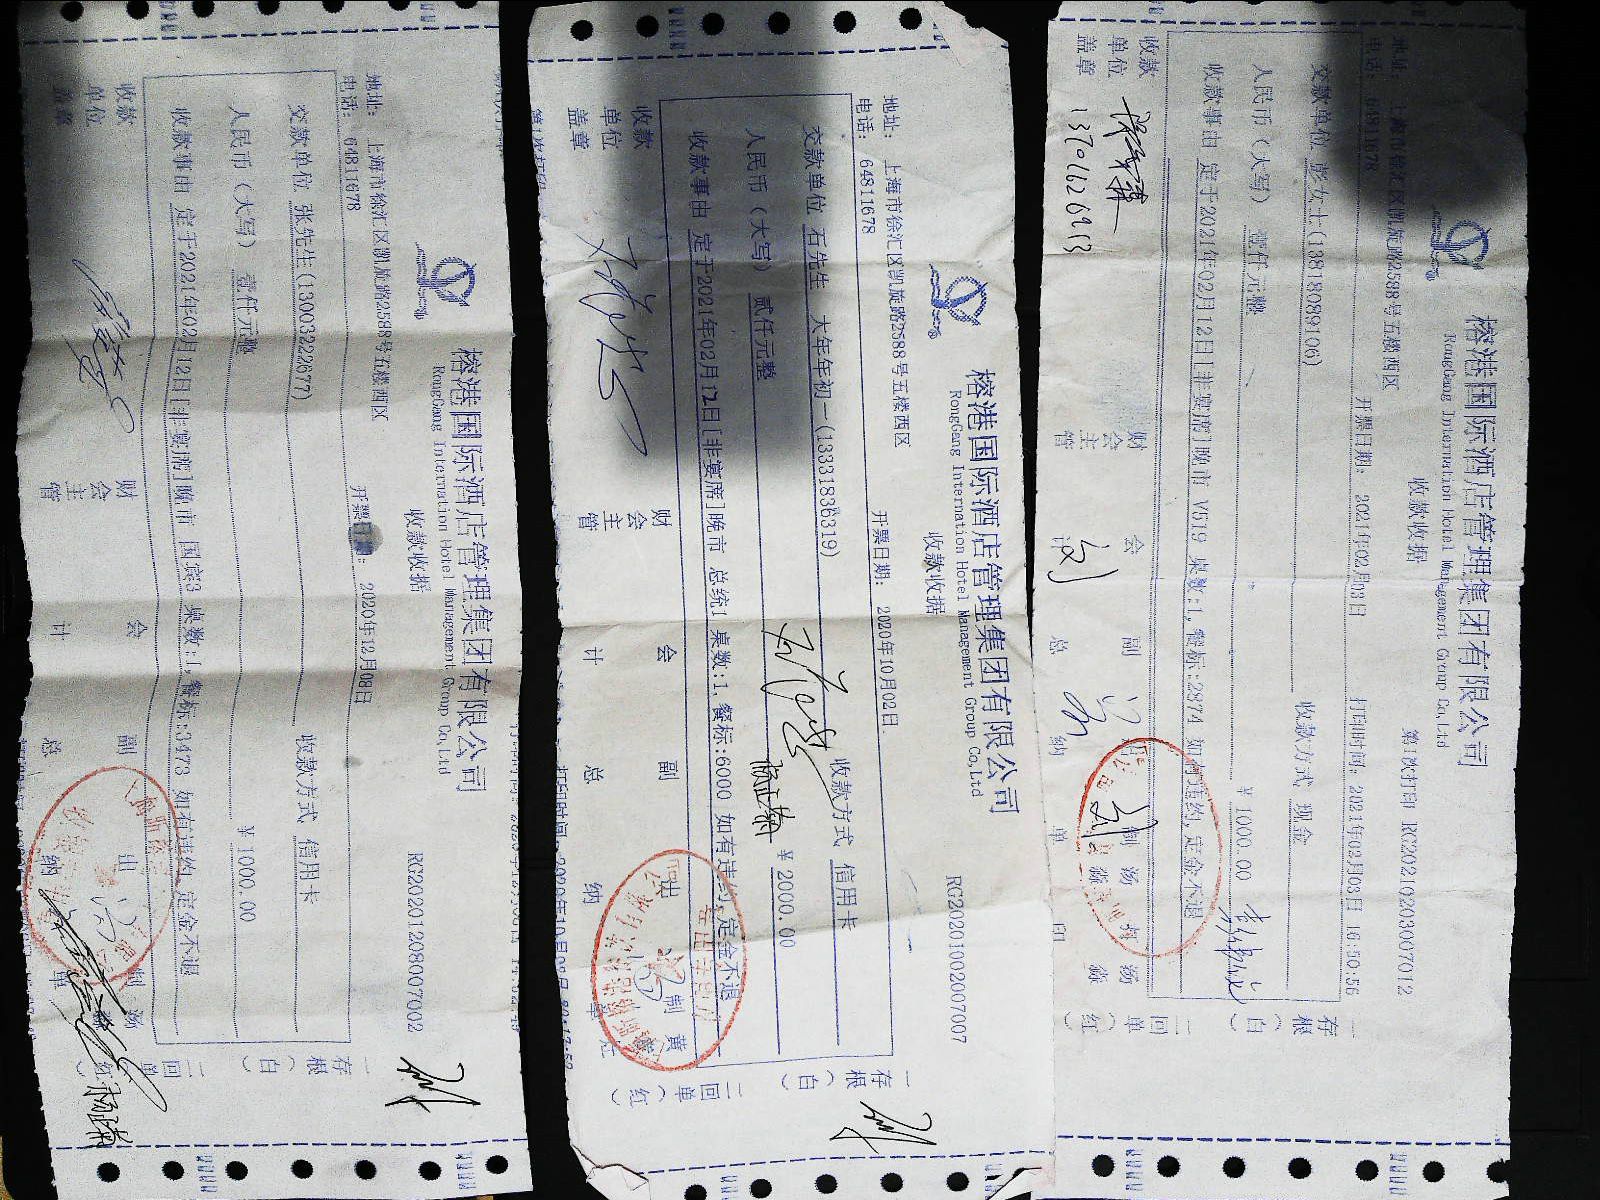 榕港国际酒店管理集团有限公司
RongGang Internation Hotel Management Group Co,Ltd
收款收据
第1次打印 RG20210203007012
地址： 上海市徐汇区凯旋路2588号五楼西区
电话： 64811678
开票日期： 2021年02月03日
打印时间： 2021年02月03日 16:50:56
交款单位 彭女士(13818089106)
收款方式 现金
人民币（大写） 壹仟元整
￥1000.00
收款事由 定于2021年02月12日[非宴席]晚市 V619 桌数:1, 餐标:2874 如有违约,定金不退
收款单位盖章
财会主管
会
副总
纳
制单
汤
印
一存根（白）
二回单（红）
13701626913
榕港国际酒店管理集团有限公司
RongGang Internation Hotel Management Group Co,Ltd
收款收据
RG20201002007007
地址： 上海市徐汇区凯旋路2588号五楼西区
电话： 64811678
开票日期： 2020年10月02日
交款单位 石先生 大年年初一(13331836319)
收款方式 信用卡
人民币（大写） 贰仟元整
￥2000.00
收款事由 定于2021年02月12日[非宴席]晚市 总统1 桌数:1 餐标:6000 如有违约,定金不退
收款单位盖章
财会主管
会计
副总
出纳
制单
黄
一存根（白）
二回单（红）
榕港国际酒店管理集团有限公司
RongGang Internation Hotel Management Group Co,Ltd
收款收据
RG20201208007002
地址： 上海市徐汇区凯旋路2588号五楼西区
电话： 64811678
开票日期： 2020年12月08日
交款单位 张先生(13003222677)
收款方式 信用卡
人民币（大写） 壹仟元整
￥1000.00
收款事由 定于2021年02月12日[非宴席]晚市 国宾3 桌数:1, 餐标:3473 如有违约,定金不退
收款单位盖章
财会主管
会计
副总
出纳
制单
汤
一存根（白）
二回单（红）